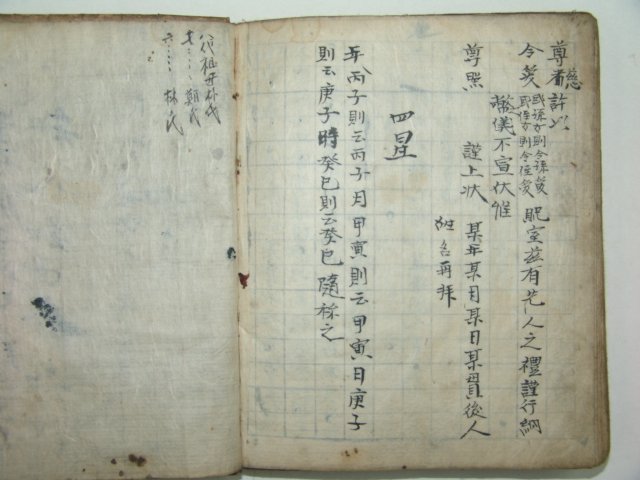 尊慈許以
令愛 或孫女則令孫愛 或侄女則令侄愛 貺室玆有先人之禮謹行納
幣儀不宣伏惟
尊照 謹上狀 某年某月某日某貫後人
姓名再拜
四星
年丙子則云丙子月甲寅則云甲寅日庚子
則云庚子時癸巳則云癸巳隨稱之
八代祖妣朴氏
七〃〃〃鄭氏
六〃〃〃林氏